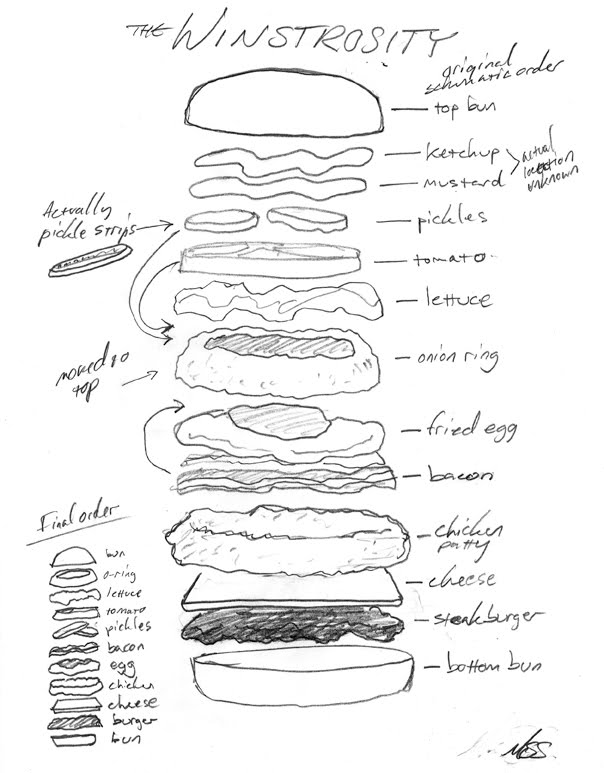 THE WINSTROSITY
original
schematic order
top bun
ketchup
mustard
actual
location
unknown
Actually
pickle strips
pickles
tomato
lettuce
onion ring
moved to
top
fried egg
bacon
chicken
patty
cheese
steakburger
bottom bun
Final order
bun
o-ring
lettuce
tomato
pickles
bacon
egg
chicken
cheese
burger
bun